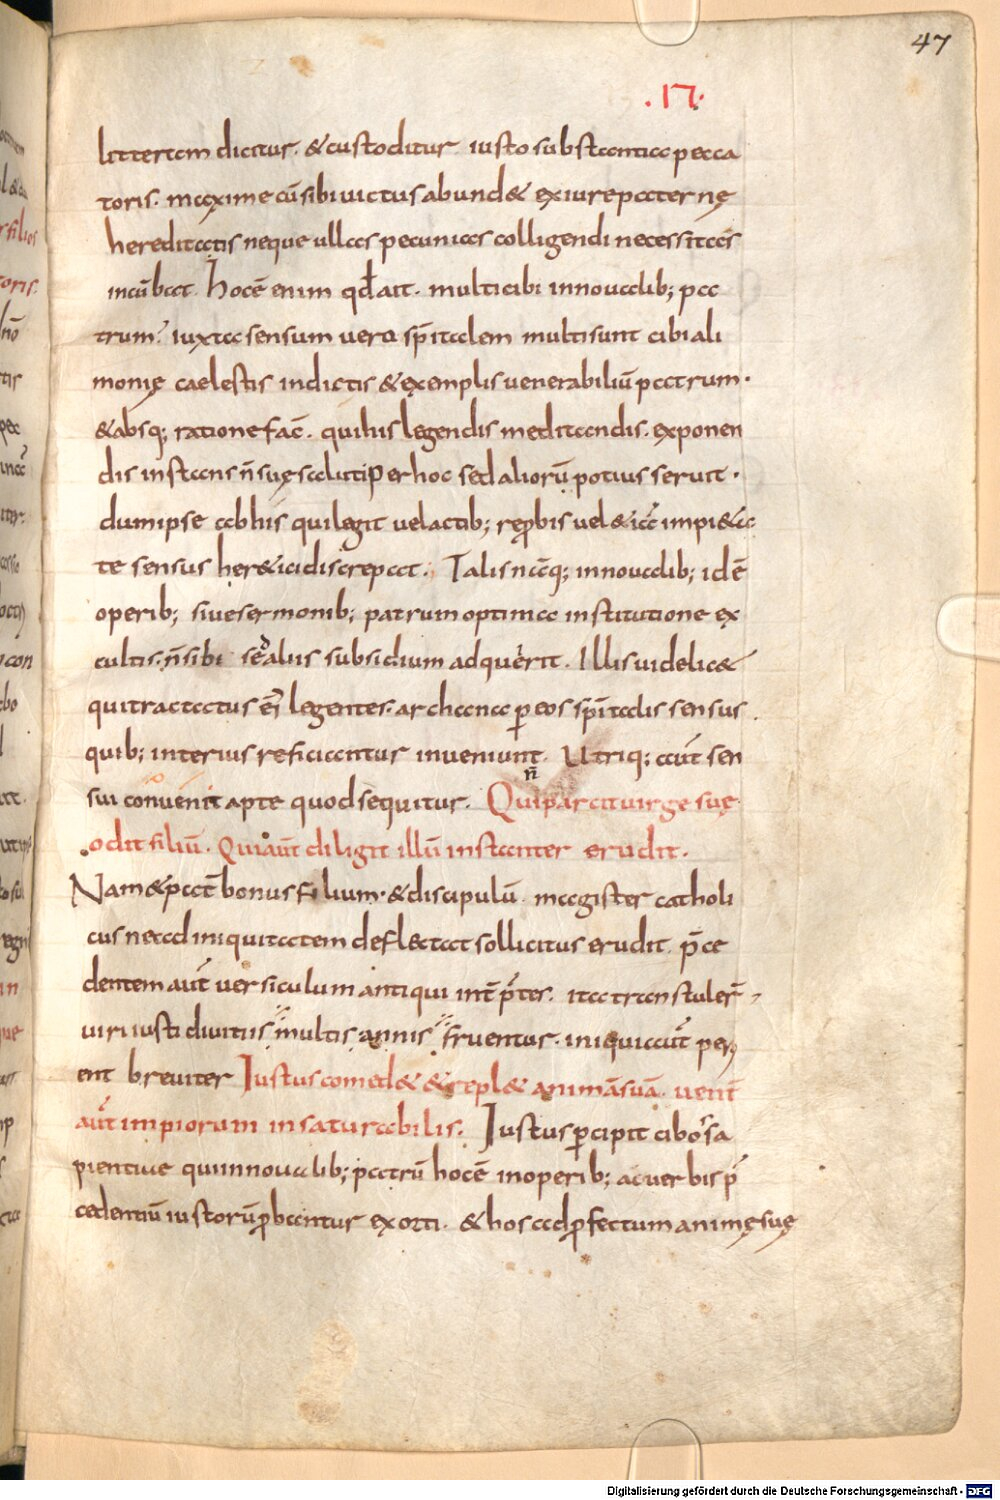 47
.IП.
litteram dicitur. & custoditur iusto substantia pecca
toris. maxime cū sibi uictus abund& ex iure paternę
hereditatis neque ullas pecunias colligendi necessitas
incūbat. Hoc ē enim qđ ait. multi cibi in noualib; pa
trum. iuxta sensum uero spiłtalem multi sunt cibi ali
monię caelestis in dictis & exemplis uenerabiliū patrum.
& absq; ratione fac̄. qui his legendis meditandis. exponen
dis instans n̄ suę saluti per hoc sed aliorū potius seruit.
dum ipse ab his qui legit uel actib; reprobis uel &iā impi&a
te sensus her&ici discrepat. Talis nāq; in noualib; id ē
operib; siue sermonib; patrum optima institutione ex
cultis. n̄ sibi sed aliis subsidium adquerit. Illis uidelic&
qui tractatus ei legentes. archana p eos spitalis sensus
quib; interius reficiantur inueniunt. Utriq; aūt sen
n̄
sui conuenit apte quod sequitur. Qui parcit uirge suę
odit filiū. Qui aūt diligit illū instanter erudit.
Nam & pat̄ bonus filium. & discipulū magister catholi
cus ne ad iniquitatem deflectat sollicitus erudit. p̄ce
dentem aūt uersiculum antiqui int̄p̄tes. ita transtuler̄
uiri iusti diuitiis multis annis fruentur. iniqui aūt per
ent breuiter Iustus comed& & repl& animā suā. uent̄
aūt impiorum insaturabilis. Iustus pcipit cibos sa
pientiae qui in noualib; patrū hoc ē in operib; ac uerbis p̄
cedentiū iustorū pbantur exorti. & hos ad pfectum animę suę
Digitalisierung gefördert durch die Deutsche Forschungsgemeinschaft - DFG